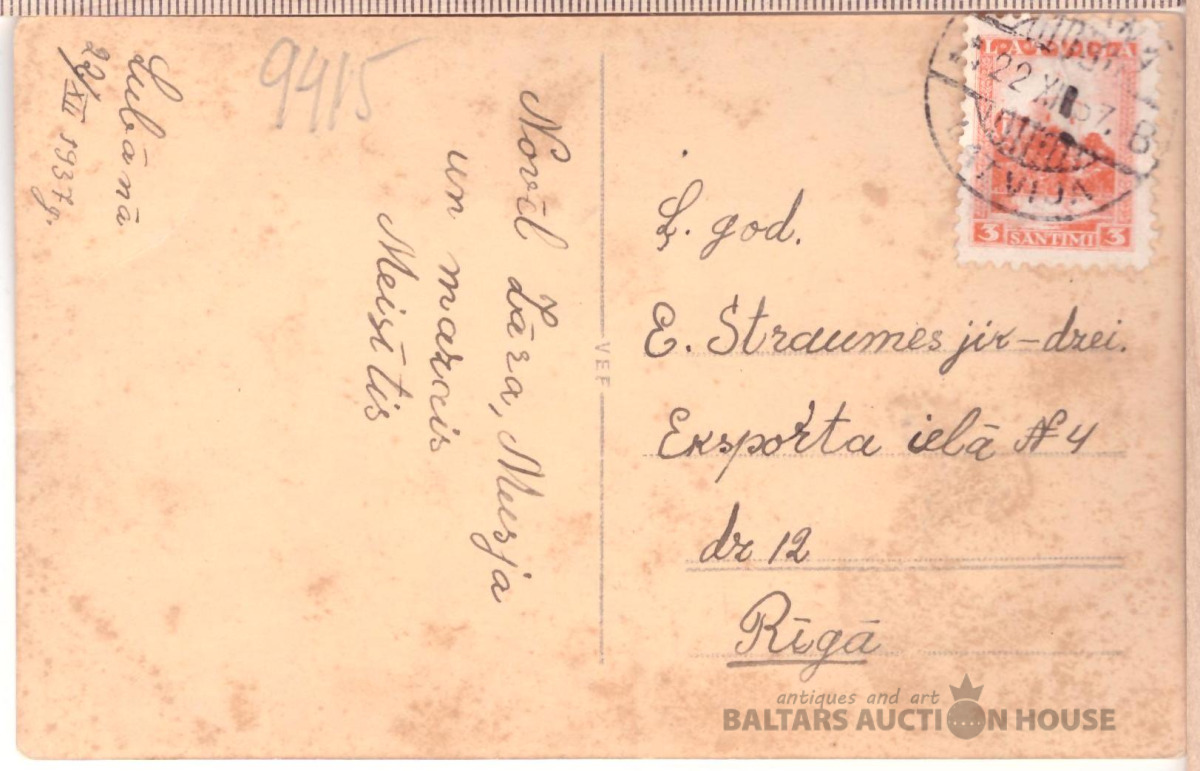 Lubānā
22/XII 1937 g.
9415
Novēl Zāra, Mersja
un mazais
Meistis
VEF
LATVIJA
22 XII 37. B
LATVIJA
3 SANTIMI 3
Ļ. god.
E. Straumes jk-dzei.
Eksporta ielā № 4
dz 12
Rīgā
antiques and art
BALTARS AUCTION HOUSE